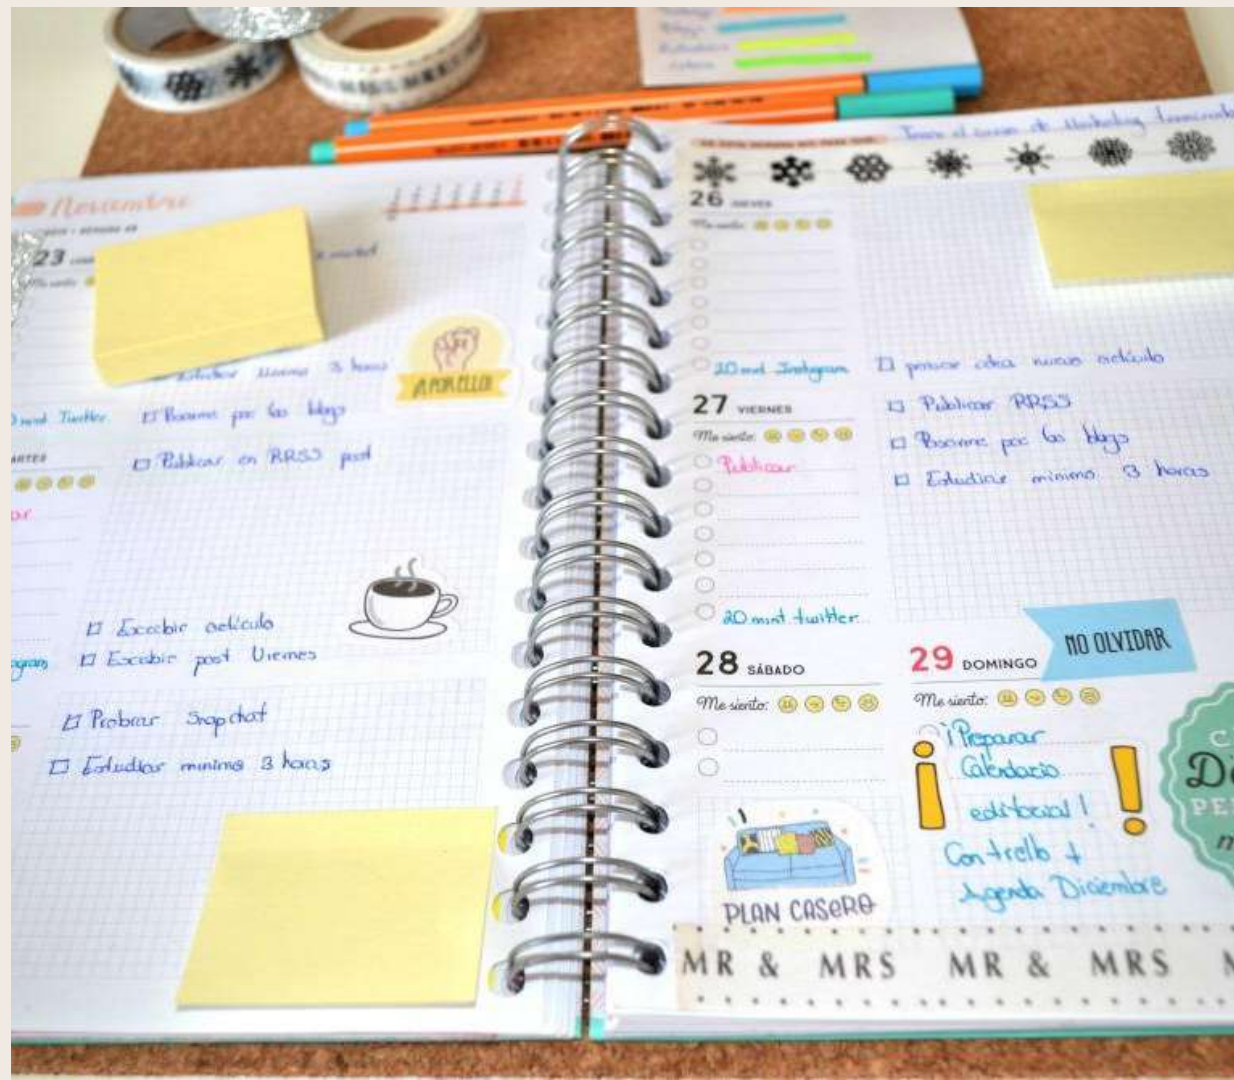 Noviembre
23
Estudiar mínimo 3 horas
¡A POR ELLO!
Twitter
□ Pasarme por los blogs
□ Publicar en RRSS post
□ Escribir artículo
□ Escribir post Viernes
□ Probrar Snapchat
□ Estudiar minimo 3 horas
26 JUEVES
Me siento:
20 mnt Instagram
□ pensar otra nuevo artículo
27 VIERNES
Me siento:
Publicar
□ Publicar RRSS
□ Pasarme por los blogs
□ Estudiar minimo 3 horas
20 mnt twitter
28 SÁBADO
Me siento:
PLAN CASERO
29 DOMINGO
NO OLVIDAR
Me siento:
¡Preparar
Calendario
editorial!
Con trello +
Agenda Diciembre
MR & MRS MR & MRS